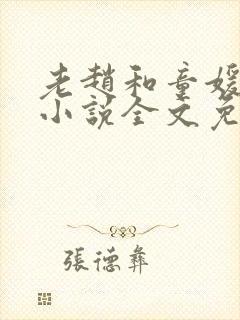 老趙和童媛
小說全文免
張德彝